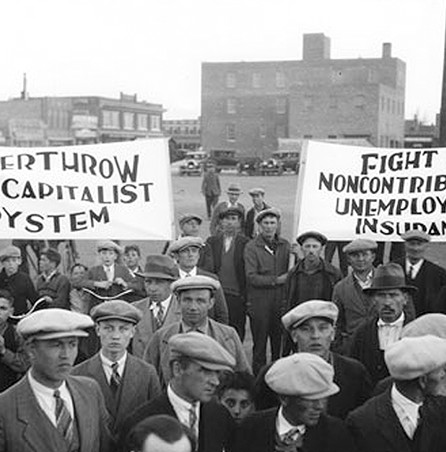 ERTHROW
CAPITALIST
YSTEM
FIGHT
NONCONTRIB
UNEMPLOY
INSURAN